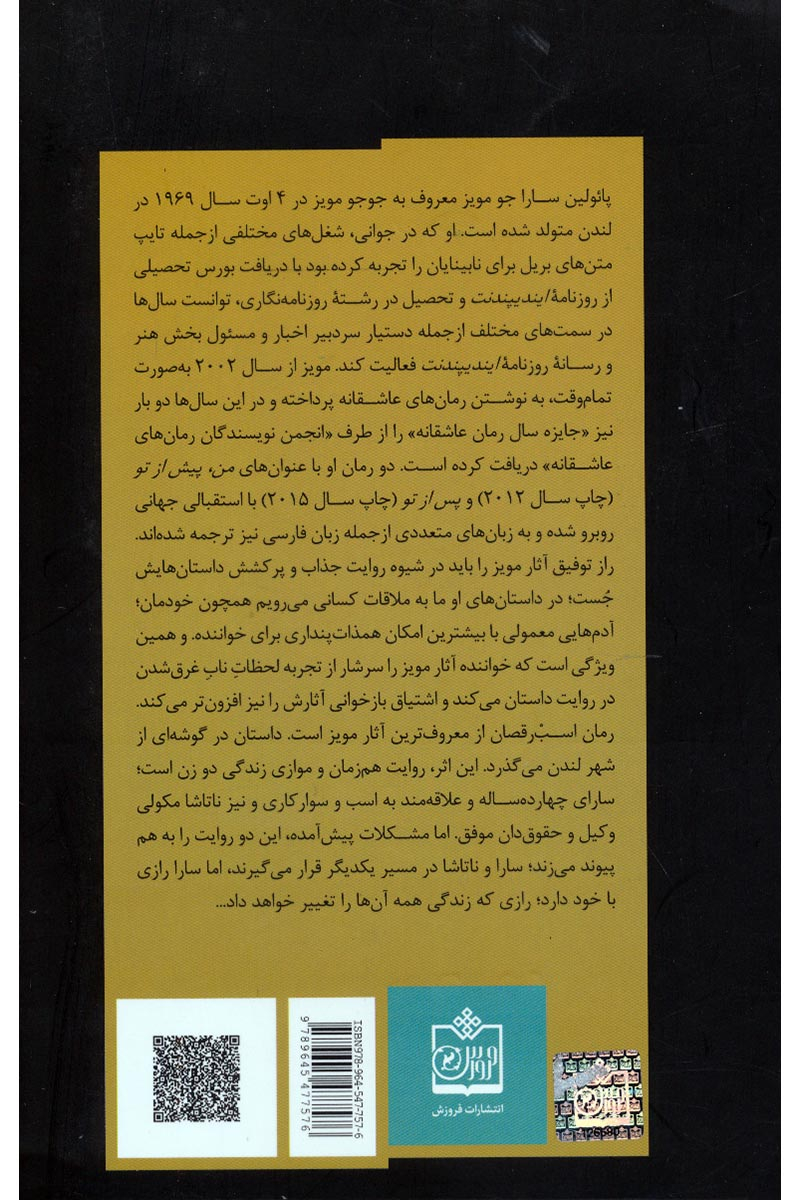 پائولین سارا جو مویز معروف به جوجو مویز در ۴ اوت سال ۱۹۶۹ در
لندن متولد شده است. او که در جوانی، شغل‌های مختلفی ازجمله تایپ
متن‌های بریل برای نابینایان را تجربه کرده بود با دریافت بورس تحصیلی
از روزنامهٔ ایندیپندنت و تحصیل در رشتهٔ روزنامه‌نگاری، توانست سال‌ها
در سمت‌های مختلف ازجمله دستیار سردبیر اخبار و مسئول بخش هنر
و رسانهٔ روزنامهٔ ایندیپندنت فعالیت کند. مویز از سال ۲۰۰۲ به‌صورت
تمام‌وقت، به نوشتن رمان‌های عاشقانه پرداخته و در این سال‌ها دو بار
نیز «جایزه سال رمان عاشقانه» را از طرف «انجمن نویسندگان رمان‌های
عاشقانه» دریافت کرده است. دو رمان او با عنوان‌های من، پیش از تو
(چاپ سال ۲۰۱۲) و پس از تو (چاپ سال ۲۰۱۵) با استقبالی جهانی
روبرو شده و به زبان‌های متعددی ازجمله زبان فارسی نیز ترجمه شده‌اند.
راز توفیق آثار مویز را باید در شیوه روایت جذاب و پرکشش داستان‌هایش
جُست؛ در داستان‌های او ما به ملاقات کسانی می‌رویم همچون خودمان؛
آدم‌هایی معمولی با بیشترین امکان همذات‌پنداری برای خواننده. و همین
ویژگی است که خواننده آثار مویز را سرشار از تجربه لحظاتِ نابِ غرق‌شدن
در روایت داستان می‌کند و اشتیاق بازخوانی آثارش را نیز افزون‌تر می‌کند.
رمان اسبْ‌رقصان از معروف‌ترین آثار مویز است. داستان در گوشه‌ای از
شهر لندن می‌گذرد. این اثر، روایت هم‌زمان و موازی زندگی دو زن است؛
سارای چهارده‌ساله و علاقه‌مند به اسب و سوارکاری و نیز ناتاشا مکولی
وکیل و حقوق‌دان موفق. اما مشکلات پیش‌آمده، این دو روایت را به هم
پیوند می‌زند؛ سارا و ناتاشا در مسیر یکدیگر قرار می‌گیرند، اما سارا رازی
با خود دارد؛ رازی که زندگی همه آن‌ها را تغییر خواهد داد...
ISBN978-964-547-757-6
9 789645 477576
فروزش
انتشارات فروزش
126580